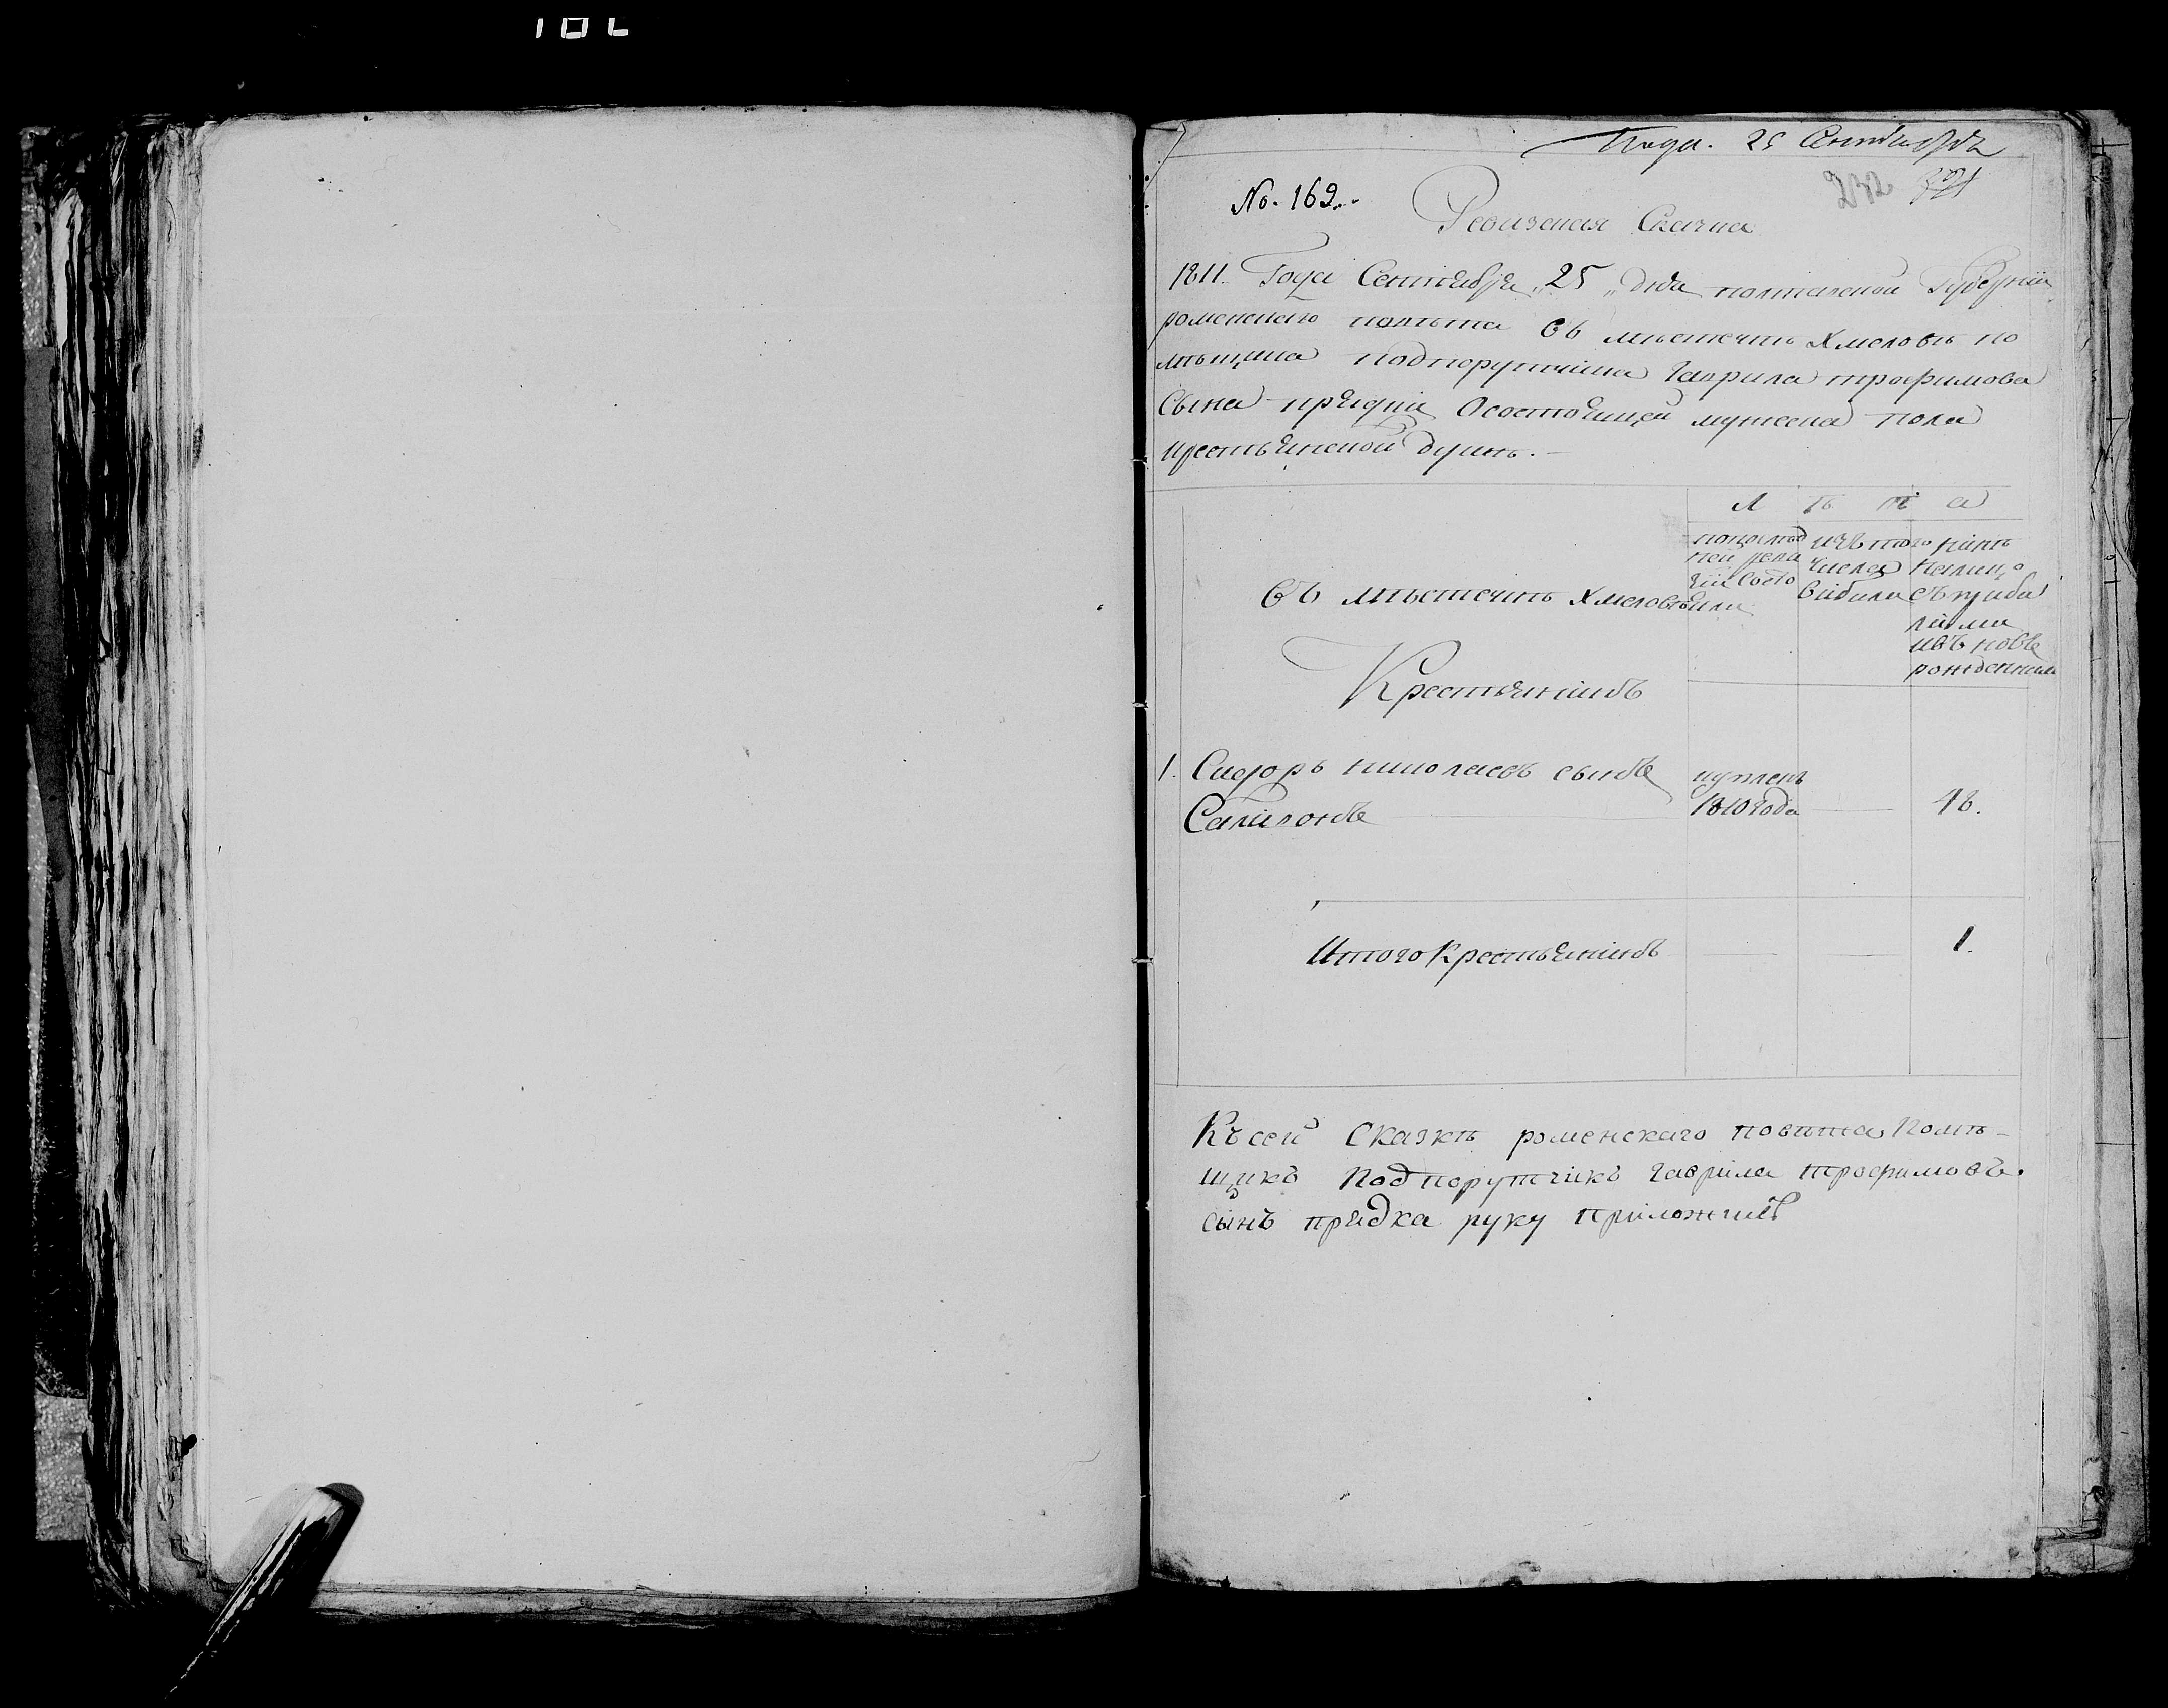 Пода. 25 Сентября
No. 169.
242
Ревизская Скаска
1811. Года Сентября „25„ дня полтавской Губернїи
роменского повѣта въ мѣстечкѣ Хмеловѣ по
мѣщика подпорутчика гаврила трофимова
Сына прядки О состоящей мужеска пола
крестьянской душѣ.
Л ѣ т а
въ мѣстечкѣ Хмеловѣ
попослѣд
ней реви
зїи состо
яли
изъ того
числа
вибили
нинѣ
налицо
съ приба
лими
извновъ
рожденними
Крестьянинъ
1. Сидоръ николаевъ сынъ
Сапилонъ
куплень
1810 года
48.
Итого Крестьянинъ
1.
Къ сей Сказкѣ роменскаго повѣта Помѣ-
щикъ Подпорутчикъ гаврила трофимовъ
сынъ прядка руку приложилъ